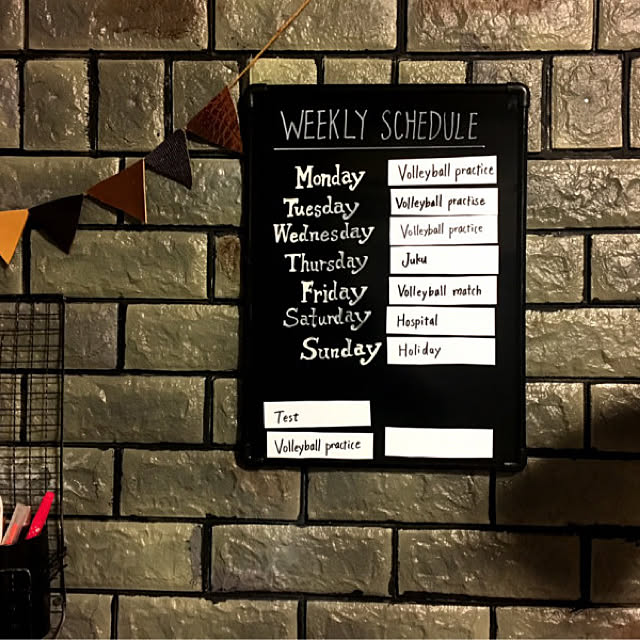 WEEKLY SCHEDULE
Monday Volleyball practice
Tuesday Volleyball practise
Wednesday Volleyball practice
Thursday Juku
Friday Volleyball match
Saturday Hospital
Sunday Holiday
Test
Volleyball practice